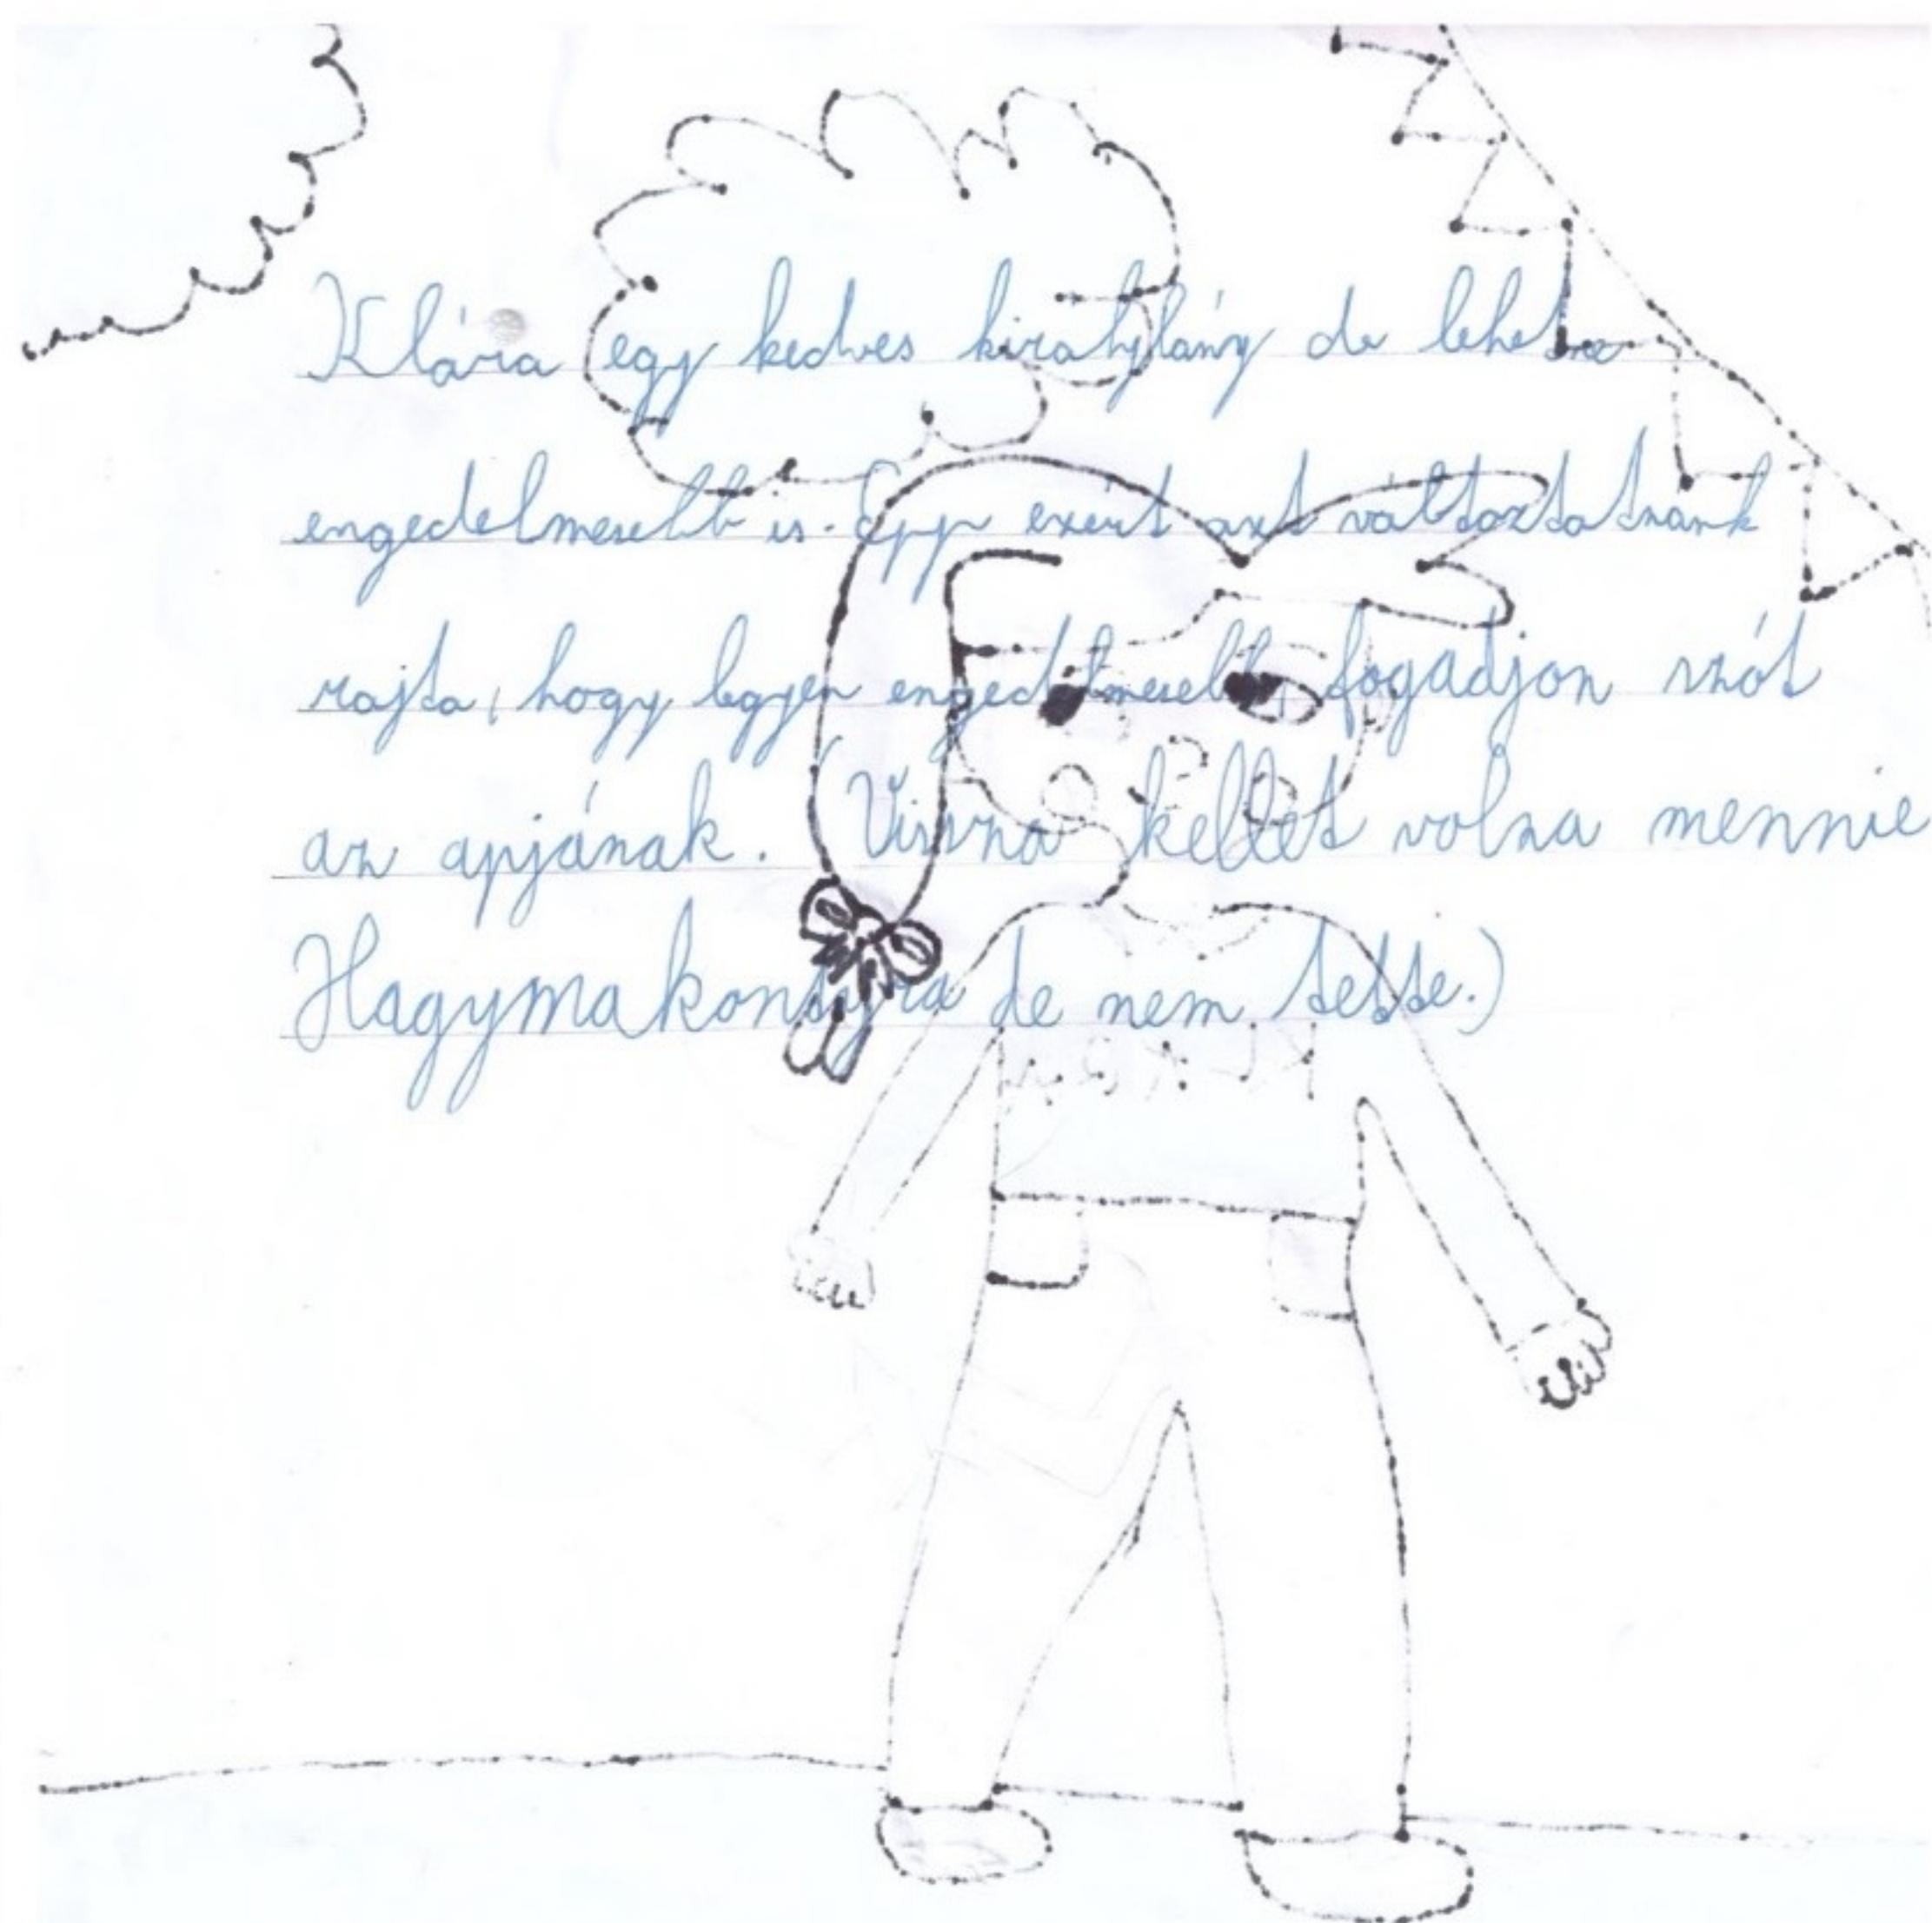 Klára egy kedves királylány de lehetne
engedelmesebb is. Épp ezért azt változtatnánk
rajta, hogy legyen engedelmesebb, fogadjon szót
az apjának. (Vissza kellet volna mennie
Hagymakontyra de nem tette.)